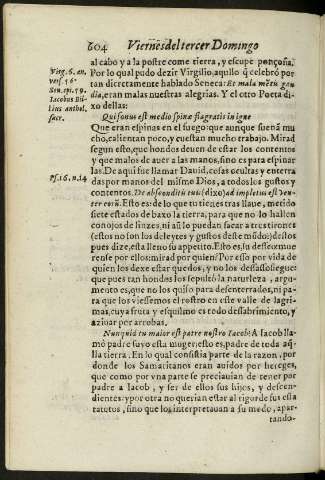 604 Viernes del tercer Domingo
al cabo y a la postre come tierra, y escupe ponçoña.
Por lo qual pudo dezir Virgilio, aquello q̃ celebró por
tan dicretamente hablado Seneca: Et mala mẽtis gau
dia, eran malas nuestras alegrias. Y el otro Poeta di-
xo dellas:
Qui sonus est medio spinæ flagratis in igne
Que eran espinas en el fuego: que aunque suenã mu
cho, calientan poco, y cuestan mucho trabajo. Mirad
segun esto, que hondos deuen de estar los contentos
y que malos de auer a las manos, sino es para espinar
las. De aqui fue llamar Dauid, cosas ocultas y enterra
das por manos del mismo Dios, a todos los gustos y
contentos. De absconditis tuis (dixo) adimpletus est ven-
ter eorũ. Esto es: de lo que tu tienes tras llaue, metido
siete estados de baxo la tierra, para que no lo hallen
conojos de linzes, ni aũ lo puedan sacar a restirones
(estos no son los deleytes y gustos deste mũdo:) destos
pues dize, esta lleno su appetito. Esto es, su desseo: mue
rense por ellos: mirad por quien! Por esso por vida de
quien los dexe estar quedos, y no los dessassosiegue:
que pues tan hondos los sepultó la naturaleza, argu-
mento es, que no los quiso para desenterrados, ni pa-
ra que los viessemos el rostro en este valle de lagri-
mas, cuya fruta y esquilmo es todo dessabrimiento, y
aziuar por arrobas.
Nunquid tu maior es patre nostro Iacob: A Iacob lla
mó padre suyo esta muger: esto es, padre de toda aq̃-
lla tierra. En lo qual consistia parte de la razon, por
donde los Samaritanos eran auidos por hereges,
que como por vna parte se preciauian de tener por
padre a Iacob, y ser de ellos sus hijos, y descen-
dientes: y por otra no querian estar al rigor de sus esta
tutos, sino que los interpretauan a su modo, apar-
tando-
Virg. 6. an.
vers. 16.
Sen. epi. 59.
Iacobus Bi-
lius anthol.
sacr.
Ps. 16. n. 14